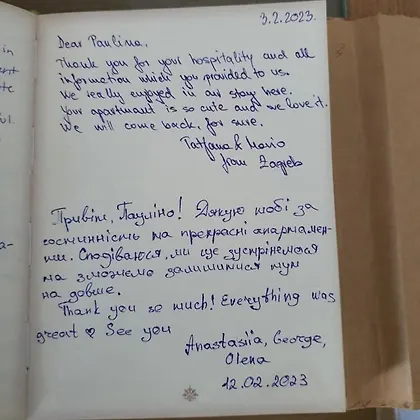 3.2.2023.
Dear Paulina,
Thank you for your hospitality and all
information which you provided to us.
We really enjoyed in our stay here.
Your apartment is so cute and we love it.
We will come back, for sure.
Tatjana & Mario
from Zagreb
Привіт, Пауліно! Дякую тобі за
гостинність та прекрасні апартамен-
ти. Сподіваюся, ми ще зустрінемося
та зможемо залишитися тут
на довше.
Thank you so much! Everything was
great ♥ See you
Anastasiia, George,
Olena
12.02.2023